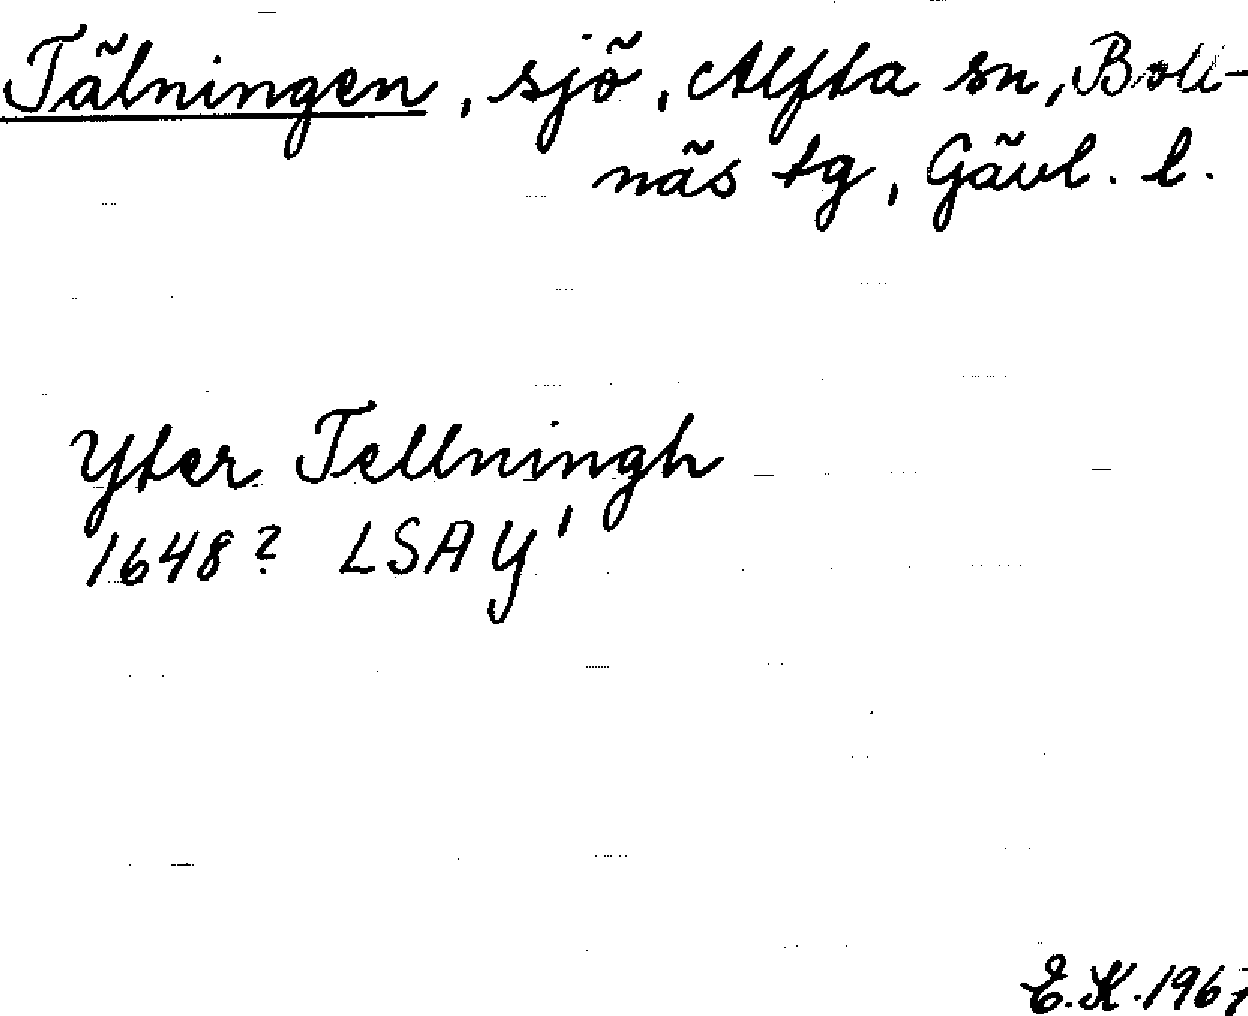 Tälningen, sjö, Alfta sn, Boll-
näs tg, Gävl. l.
Yter Tellningh
1648? LSA Y'
E.K. 1967